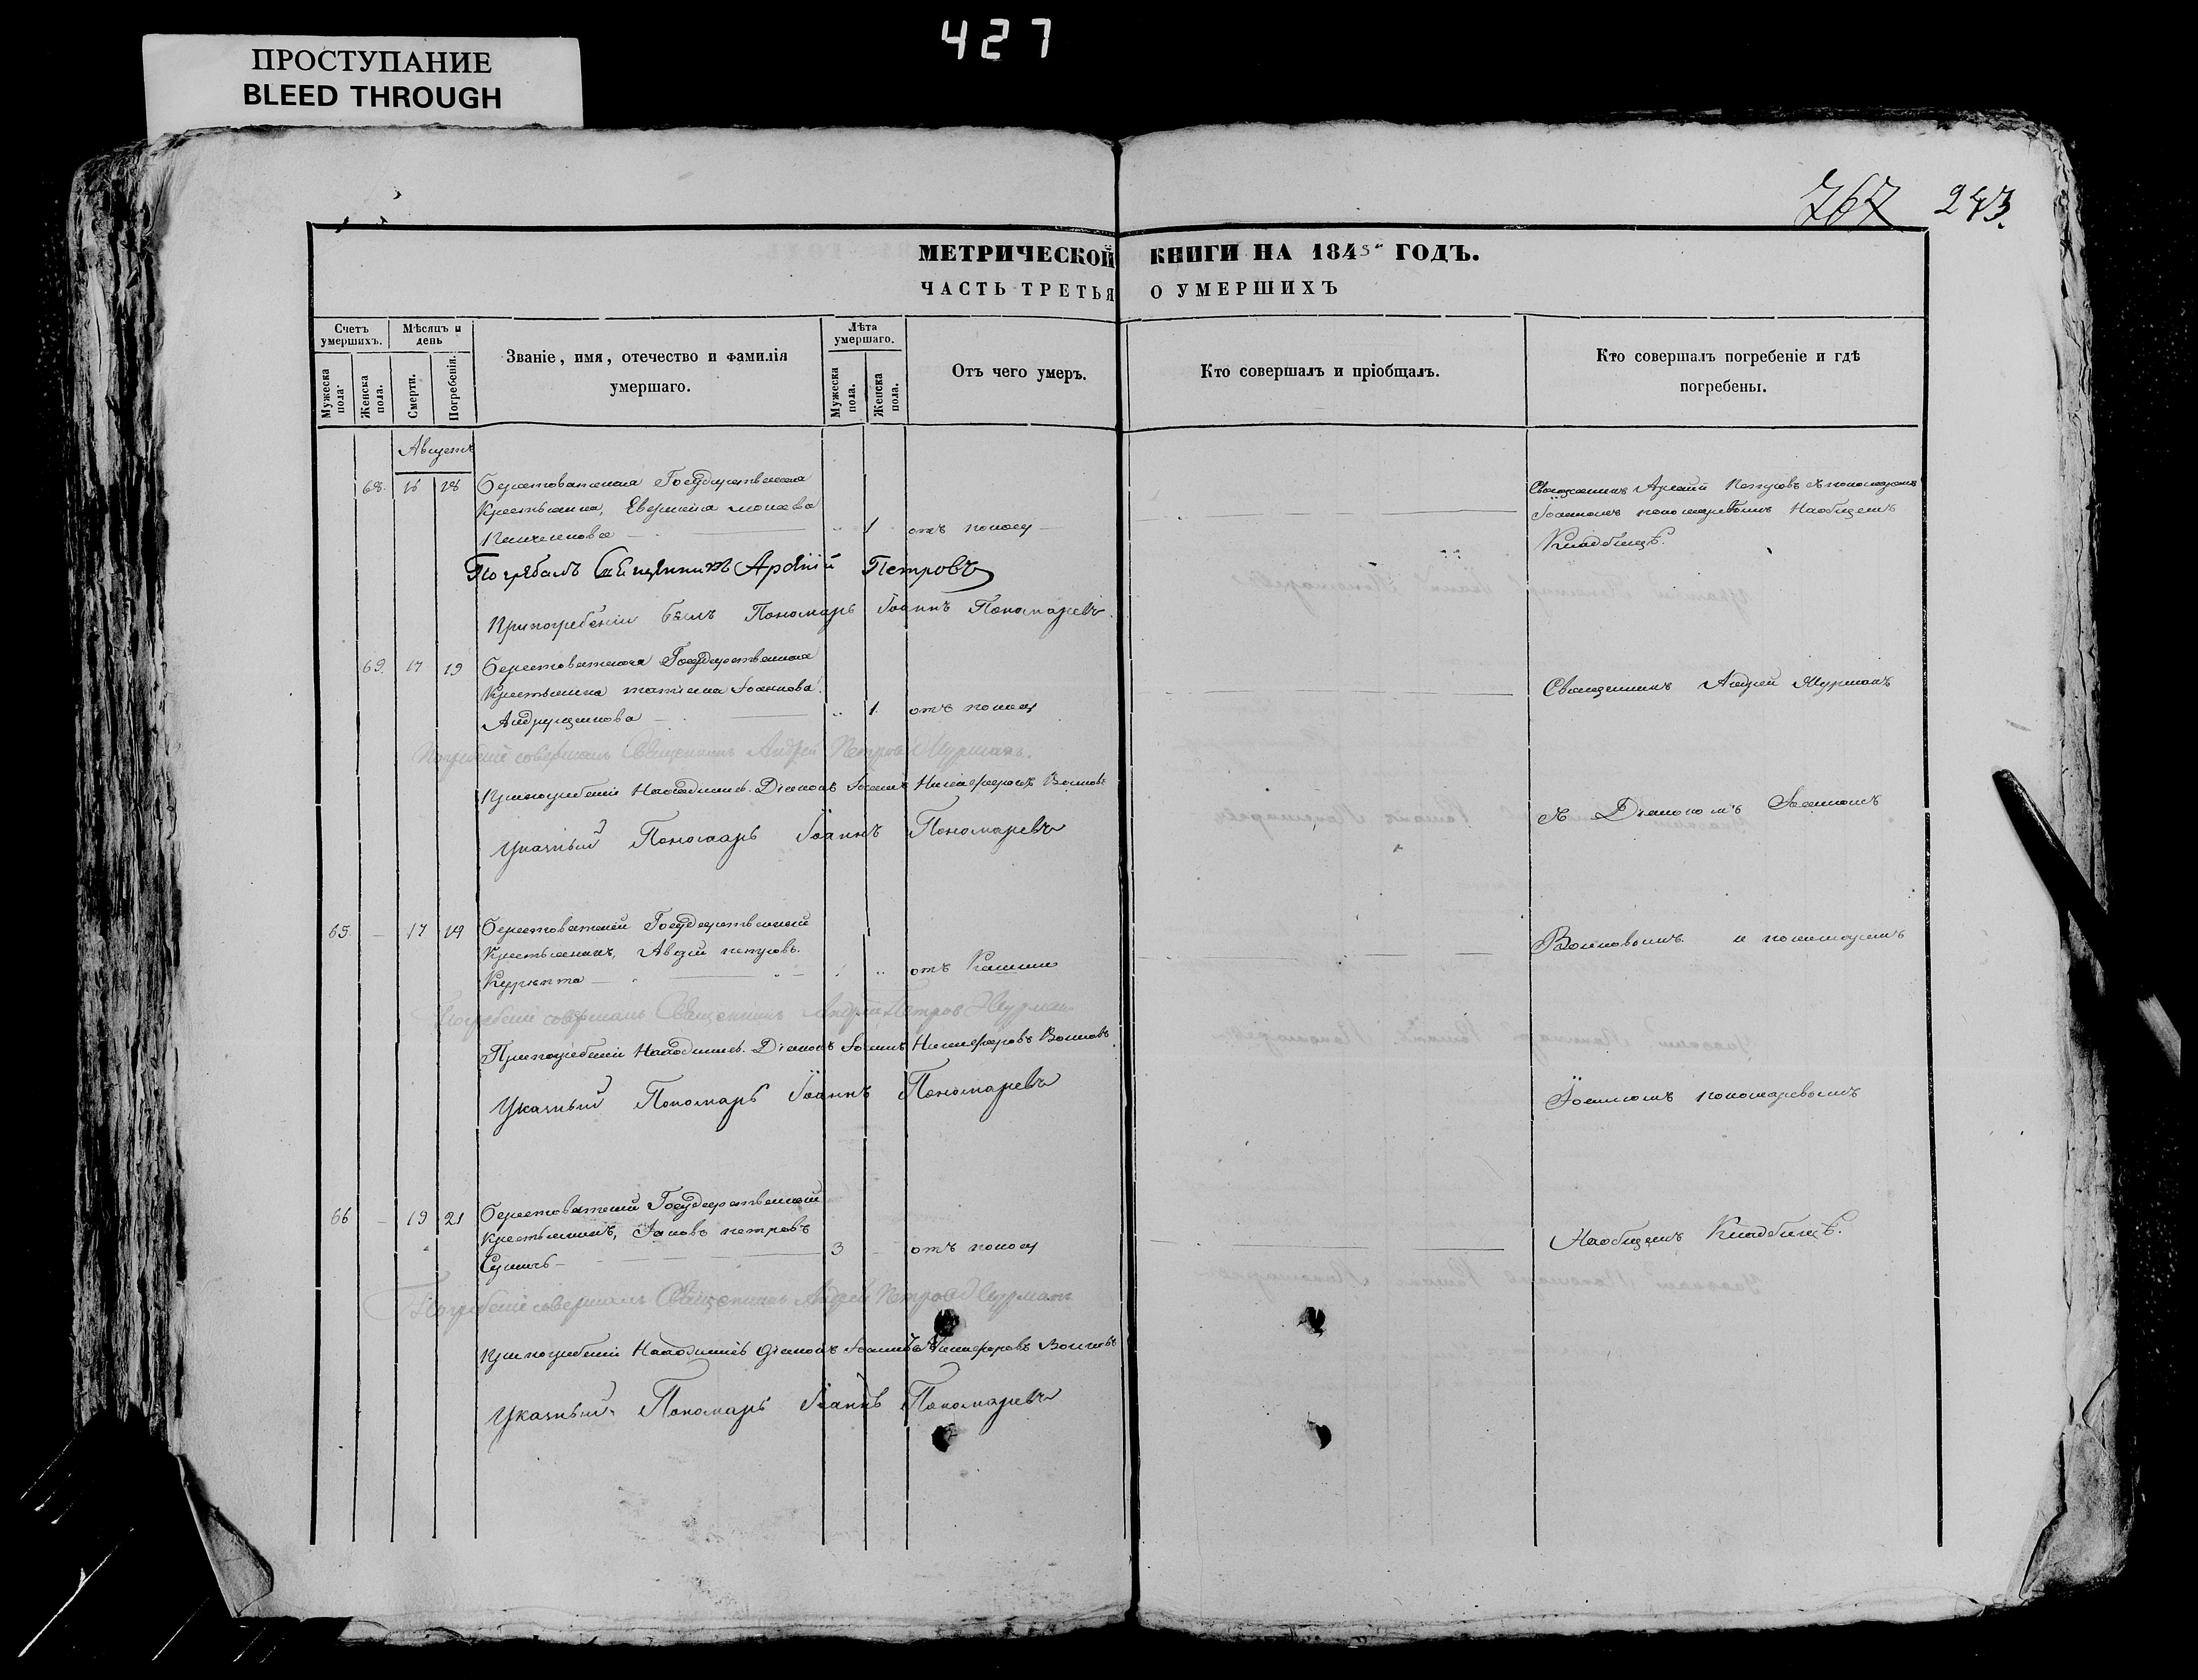 427
ПРОСТУПАНИЕ
BLEED THROUGH
767 243.
МЕТРИЧЕСКОЙ КНИГИ НА 1845 ГОДЪ.
ЧАСТЬ ТРЕТЬЯ О УМЕРШИХЪ
Счетъ умершихъ.
Мужеска пола.
Женска пола.
Мѣсяцъ и день
Смерти.
Погребенія.
Званіе, имя, отечество и фамилія
умершаго.
Лѣта умершаго.
Мужеска пола.
Женска пола.
Отъ чего умеръ.
Кто совершалъ и пріобщалъ.
Кто совершалъ погребеніе и гдѣ
погребены.
Августъ
68. 16 18 Берестоватская Государственная
Крестьянка,
1 отъ поносу
Священникъ Петровъ
Іоанномъ пономаревымъ Наобщемъ
Кладбищѣ.
Погребалъ Священникъ Петровъ
Припогребеніи былъ Пономарь Іоаннъ Пономаревъ
69. 17 19 Берестоватская Государственная
Крестьянка татіана Іоаннова
Андрущенкова 1. отъ поносу
Священникъ Андрей Мурманъ
Погребеніе совершалъ Священникъ Андрей Петровъ Мурманъ.
Припогребеніи Находились. Діаконъ Іоаннъ Никифоровъ Воиновъ
Указный Пономарь Іоаннъ Пономаревъ
съ Діакономъ Іоанномъ
65. 17 19 Берестоватскій Государственный
Крестьянинъ, петровъ
отъ Кашли
Воиновымъ и пономаремъ
Погребеніе совершалъ Священникъ Андрей Петров Мурман
Припогребеніи Находились. Діаконъ Іоаннъ Никифоровъ Воиновъ.
Указный Пономарь Іоаннъ Пономаревъ
Іоанномъ пономаревымъ
66 19 21 Берестоватскій Государственный
Крестьянинъ, Іаковъ петровъ
3 отъ поносу
Наобщемъ Кладбищѣ.
Погребеніе совершалъ Священникъ Андрей Петров Мурманъ
Припогребеніи Находились Діаконъ Іоаннъ Никифоровъ Воиновъ
Указный Пономарь Іоаннъ Пономаревъ